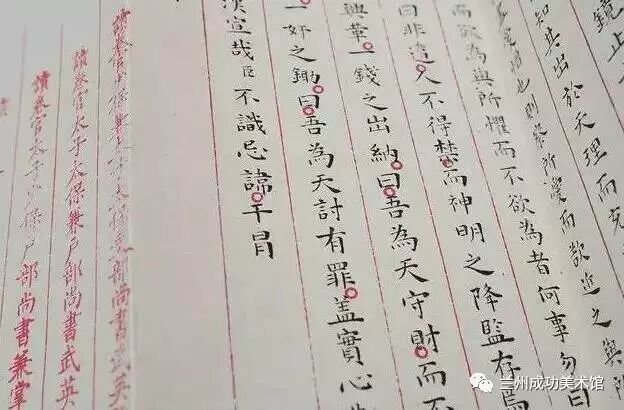 鏡止
知其出於天理而克
也則所而欲近之與
而欲為與所懼而不欲為者何事勿曰
曰非人不得禁而神明之降監存焉
興一錢之出納曰吾為天守財而不
一奸之鋤曰吾為天討有罪蓋實心
漢宣哉臣不識忌諱干冒
讀卷官保兼太子太保部尚書武英
讀卷官太子太保兼戶部尚書武英
讀卷官太子少保戶部尚書兼掌
兰州成功美术馆